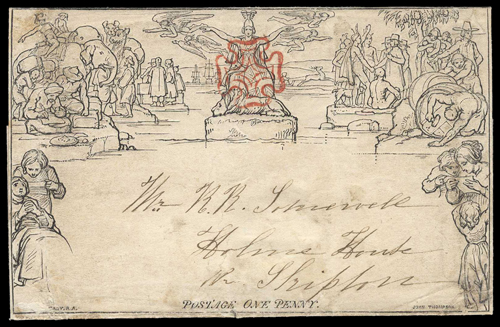 Mr R.R. Somervell
Holme House
Nr Skipton
POSTAGE ONE PENNY.